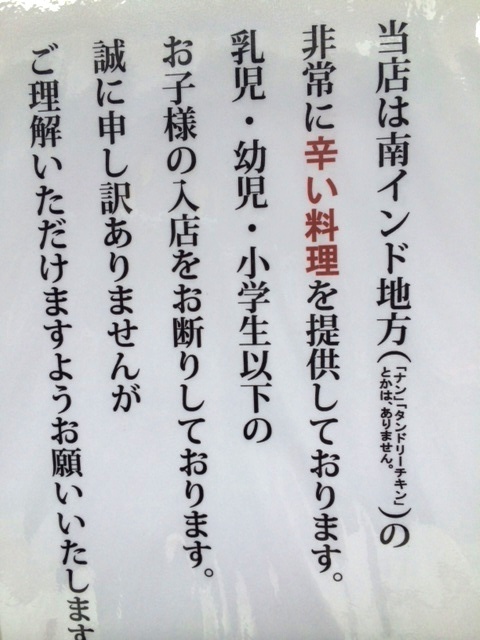 当店は南インド地方(「ナン」「タンドリーチキン」とかは、ありません。)の
非常に辛い料理を提供しております。
乳児・幼児・小学生以下の
お子様の入店をお断りしております。
誠に申し訳ありませんが
ご理解いただけますようお願いいたします